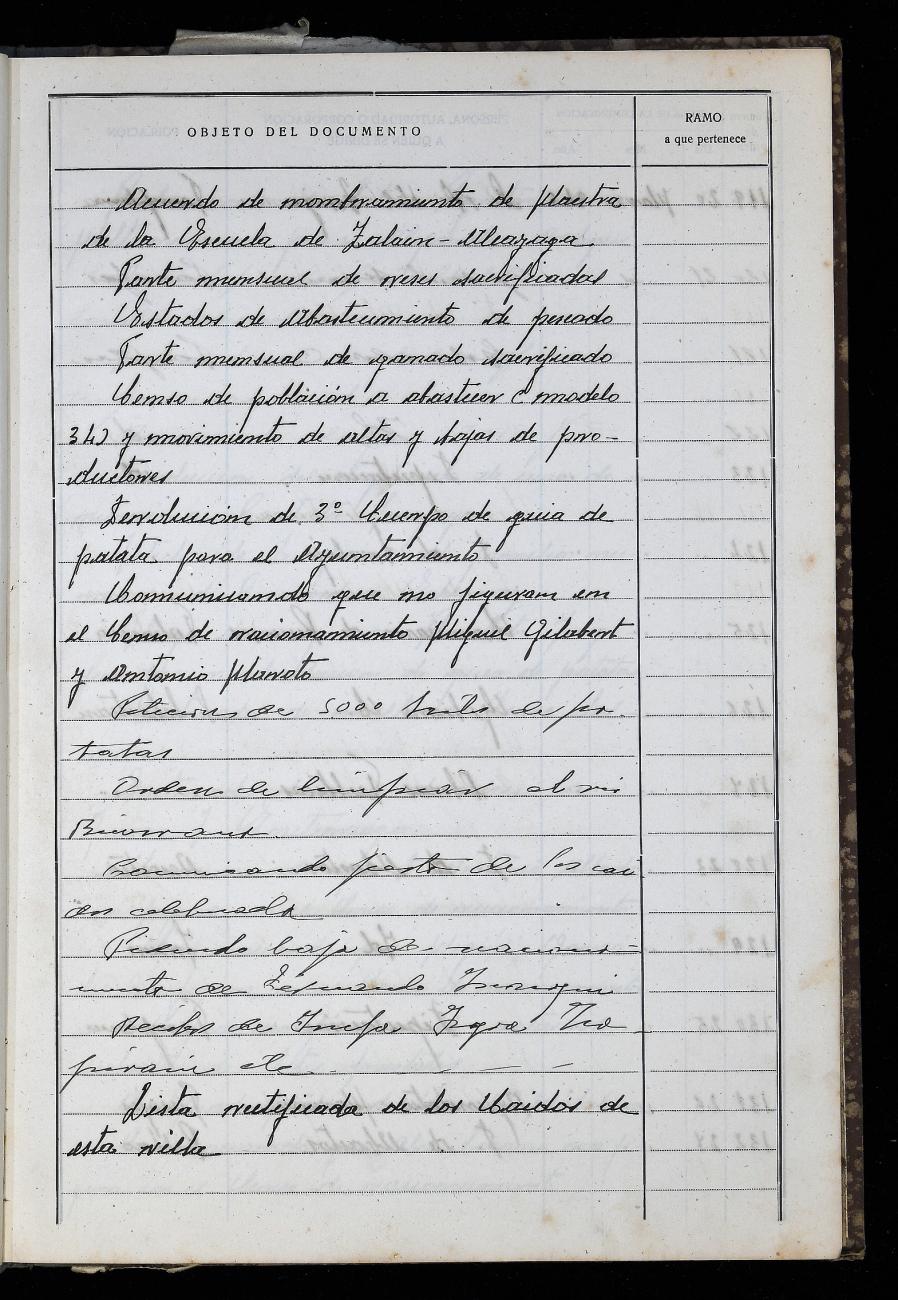 OBJETO DEL DOCUMENTO
RAMO
a que pertenece
Acuerdo de nombramiento de Maestra
de la Escuela de Zalain-Alcayaga
Parte mensual de reses sacrificadas
Estados de Abastecimiento de pescado
Parte mensual de ganado sacrificado
Censo de población a abastecer (modelo
342) y movimiento de altas y bajas de pro-
ductores
Devolución de 3º Cuerpo de guia de
patata para el Ayuntamiento
Comunicando que no figuran en
el Censo de racionamiento Miguel Gilabert
y Antonio
Peticion de 5000 kilos de pa-
tatas
Orden de limpiar el rio
Comunicando fiesta de los cai
dos celebrada
Pidiendo baja de raciona-
miento de
Recibos de
etc
Lista rectificada de los Caidos de
esta villa